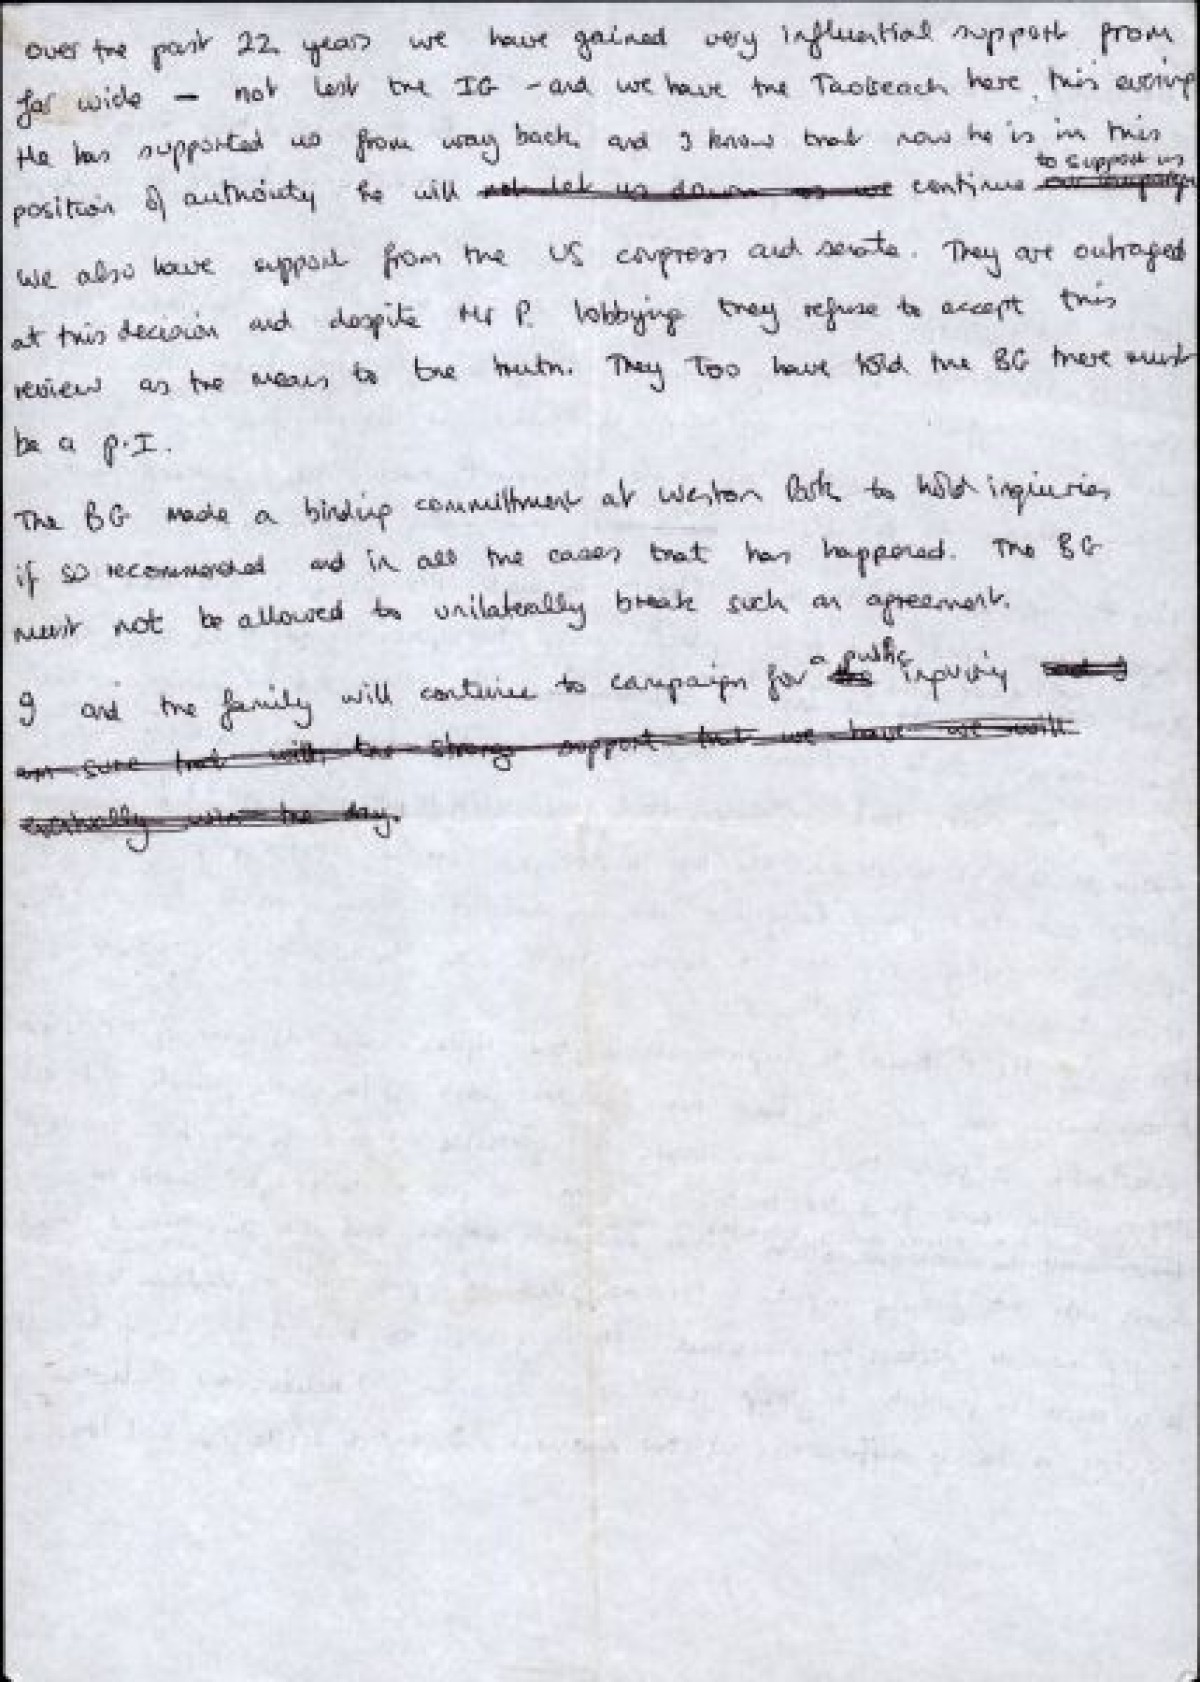 over the past 22 years we have gained very influential support from
far wide – not lest the IG – and we have the Taoiseach here this evening
He has supported us from way back and I know that now he is in this
to support us
position of authority he will not let us down as we continue our campaign
We also have support from the US congress and senate. They are outraged
at this decision and despite Mr P. lobbying they refuse to accept this
review as the means to the truth. They Too have told the BG there must
be a p.I.
The BG made a binding committment at Weston Park to hold inquiries
if so recommended and in all the cases that has happened. The BG
must not be allowed to unilaterally break such an agreement.
a public
I and the family will continue to campaign for inquiry and I
am sure that with the strong support that we have we will
eventually win the day.